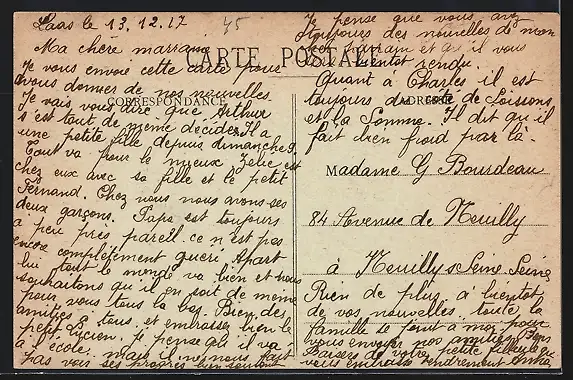 Laas le 13.12.17
45
Ma chère marraine
Je vous envoie cette carte pour
vous donner de nos nouvelles
Je vais vous dire que Arthur
s'est tout de meme décidé. Il a
une petite fille depuis dimanche 9.
Tout va pour le mieux Zelie est
chez eux avec sa fille et le petit
Fernand. Chez nous nous avons ses
deux garçons. Papa est toujours
a peu près pareil. ce n'est pas
encore complètement gueri. Apart
lui tout le monde va bien et nous
souhaitons qu'il en soit de meme
pour vous tous la bas. Bien des
amitiés a tous et embrassez bien le
petit Lucien. Je pense qu'il va
à l'école, mais il ne nous fait
pas voir ses progrès bien souvent
CARTE POSTALE
CORRESPONDANCE
ADRESSE
Je pense que vous avez
toujours des nouvelles de mon
et qu'il vous
bientot rendu.
Quant à Charles il est
toujours du coté de Soissons
et la Somme. Il dit qu'il
fait bien froid par là.
Madame G Bourdeau
84 Avenue de Neuilly
à Neuilly s Seine. Seine
Rien de plus à bientot
de vos nouvelles. toute la
famille se joint à moi pour
vous envoyer nos amitiés. Bons
Baisers de votre petite filleule qui
vous embrasse tendrement